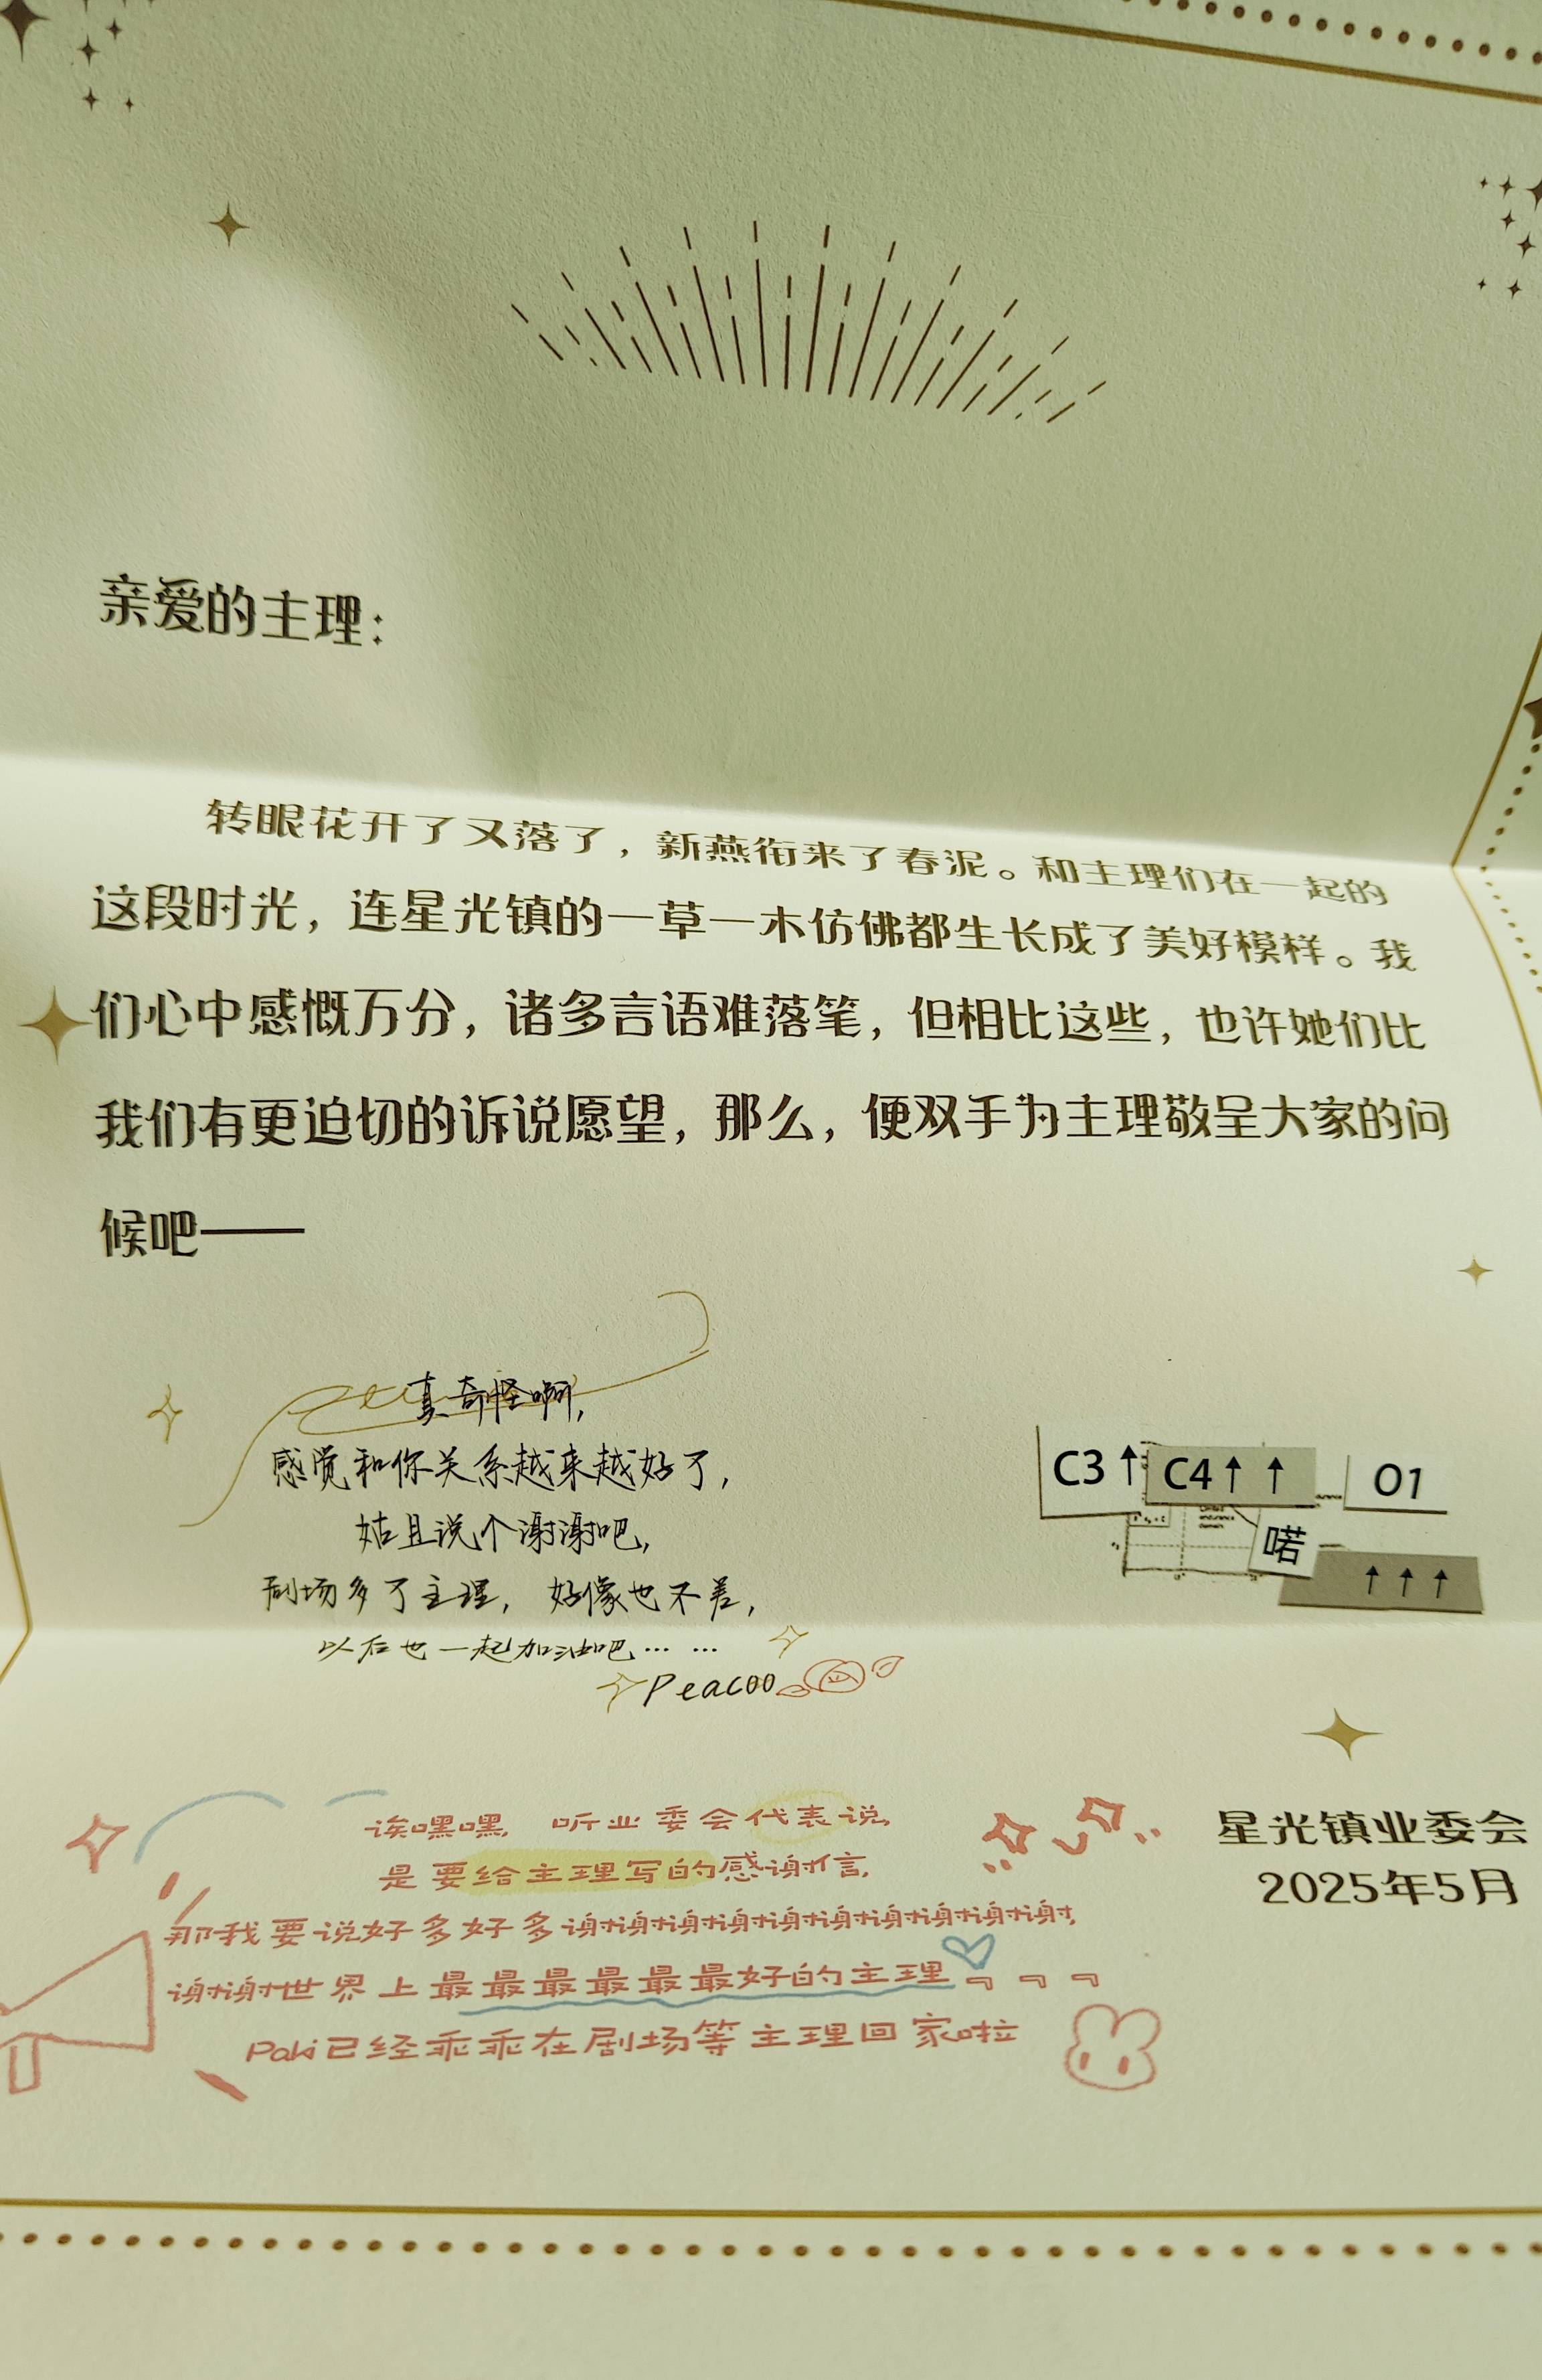 亲爱的主理：
转眼花开了又落了，新燕衔来了春泥。和主理们在一起的
这段时光，连星光镇的一草一木仿佛都生长成了美好模样。我
们心中感慨万分，诸多言语难落笔，但相比这些，也许她们比
我们有更迫切的诉说愿望，那么，便双手为主理敬呈大家的问
候吧——
真奇怪啊，
感觉和你关系越来越好了，
姑且说个谢谢吧，
剧场多了主理，好像也不差，
以后也一起加油吧……
Peacoo
C3↑ C4↑ ↑ O1
喏
↑ ↑ ↑
诶嘿嘿，听业委会代表说，
是要给主理写的感谢信，
那我要说好多好多谢谢谢谢谢谢谢谢谢谢，
谢谢世界上最最最最最最好的主理~ ~ ~
Paki已经乖乖在剧场等主理回家啦
星光镇业委会
2025年5月